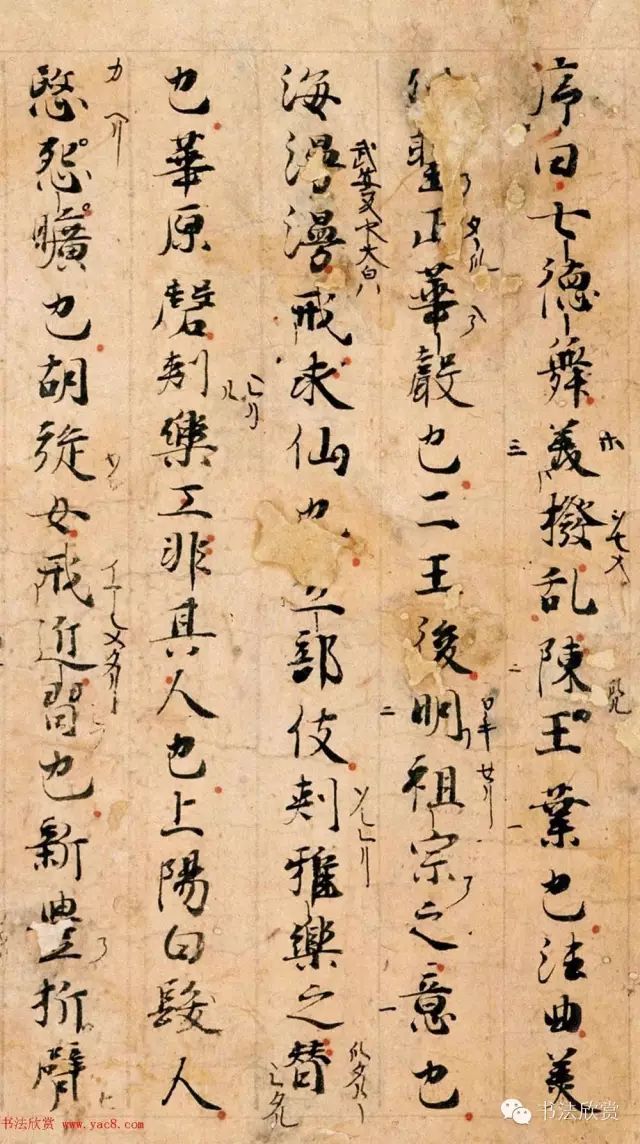 序曰七德舞美撥乱陳王業也法曲美
聖正華聲也二王後明祖宗之意也
海漫漫戒求仙也立部伎刺雅樂之替
也華原磬刺樂工非其人也上陽白髮人
愍怨曠也胡旋女戒近習也新豊折臂
书法欣赏 www.yac8.com
书法欣赏